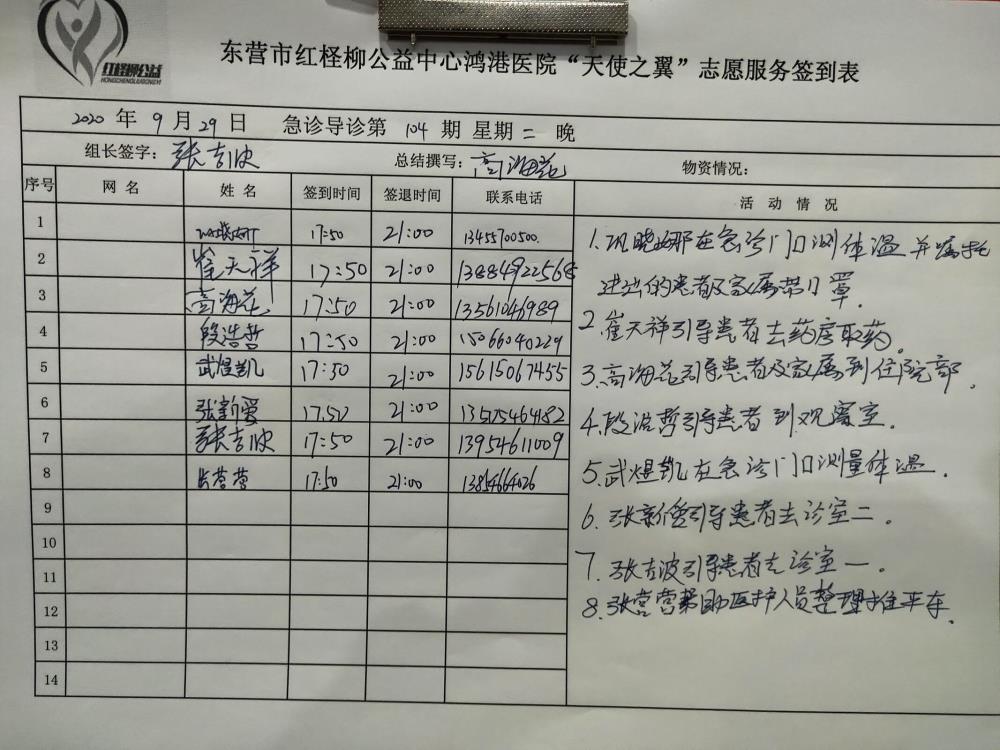 红柽柳公益
HONGCHENGLIUGONGYI
东营市红柽柳公益中心鸿港医院“天使之翼”志愿服务签到表
2020 年 9 月 29 日 急诊导诊第 104 期 星期 二 晚
组长签字：张吉波 总结撰写：高海花 物资情况：
序号 网名 姓名 签到时间 签退时间 联系电话 活动情况
1 17:50 21:00 13455700500.
2 崔天祥 17:50 21:00 13884922568
3 高海花 17:50 21:00 13561046989
4 段浩哲 17:50 21:00 15066040229
5 武煜凯 17:50 21:00 15615067455
6 张新爱 17:50 21:00 13575464182
7 张吉波 17:50 21:00 13954611009
8 张营营 17:50 21:00 13854664026
9
10
11
12
13
14
1.巩晓娜在急诊门口测体温并嘱托
进出的患者及家属带口罩.
2.崔天祥引导患者去药房取药.
3.高海花引导患者及家属到住院部.
4.段浩哲引导患者到观察室.
5.武煜凯在急诊门口测量体温.
6.张新爱引导患者去诊室二.
7.张吉波引导患者去诊室一.
8.张营营帮助医护人员整理推平车.